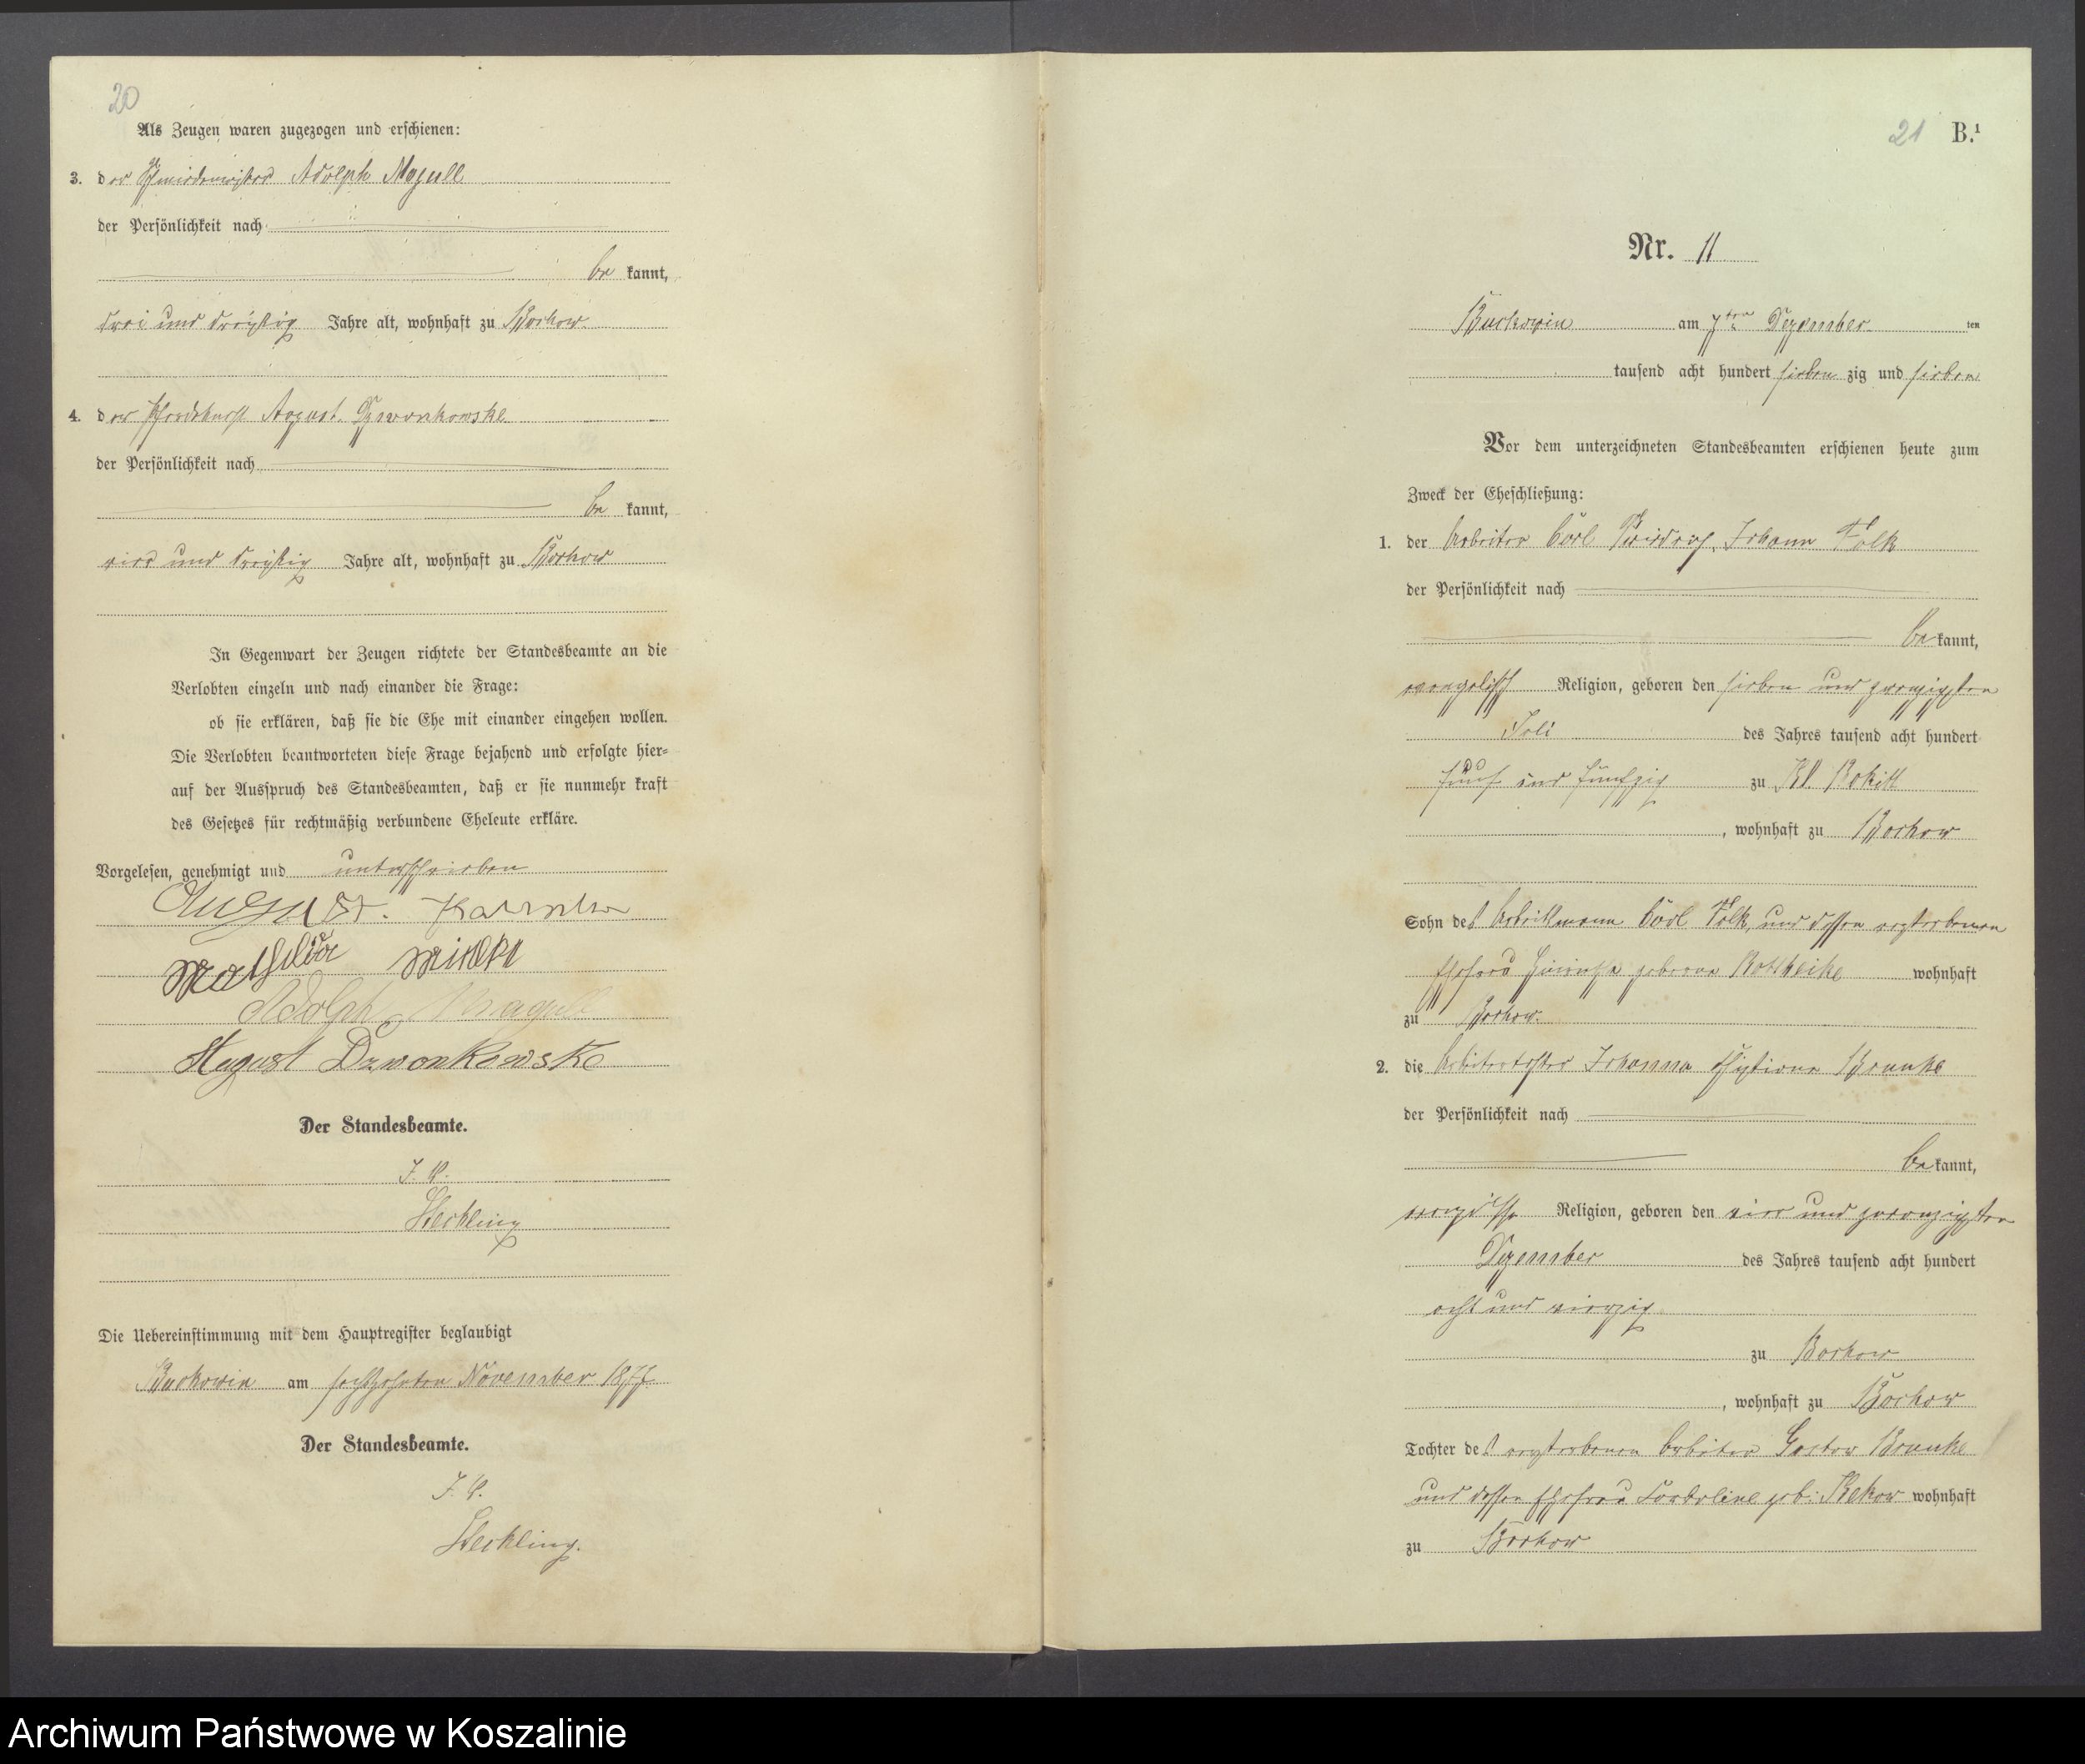 20
Als Zeugen waren zugezogen und erschienen:
3. der Schmiedemeister Adolph Magull
der Persönlichkeit nach
be kannt,
drei und dreißig Jahre alt, wohnhaft zu Borkow
4. der Pferdeknecht August Dzwonkowske
der Persönlichkeit nach
be kannt,
vier und dreißig Jahre alt, wohnhaft zu Borkow
In Gegenwart der Zeugen richtete der Standesbeamte an die
Verlobten einzeln und nach einander die Frage:
ob sie erklären, daß sie die Ehe mit einander eingehen wollen.
Die Verlobten beantworteten diese Frage bejahend und erfolgte hier=
auf der Ausspruch des Standesbeamten, daß er sie nunmehr kraft
des Gesetzes für rechtmäßig verbundene Eheleute erkläre.
Vorgelesen, genehmigt und unterschrieben
August
Mathilde
Adolph Magull
August Dzwonkowske
Der Standesbeamte.
J. V.
Heckling
Die Uebereinstimmung mit dem Hauptregister beglaubigt
Buckowin am sechszehnten November 1877
Der Standesbeamte.
J. V.
Heckling.
21 B.¹
Nr. 11
Buckowin am 7ten Dezember ten
tausend acht hundert sieben zig und sieben
Vor dem unterzeichneten Standesbeamten erschienen heute zum
Zweck der Eheschließung:
1. der Arbeiter Carl Friedrich Johann Falk
der Persönlichkeit nach
be kannt,
evangelisch Religion, geboren den sieben und zwanzigsten
Juli des Jahres tausend acht hundert
fünf und fünfzig zu Kl.
, wohnhaft zu Borkow
Sohn des Arbeitsmann Carl Falk, und dessen verstorbenen
Ehefrau geborene wohnhaft
zu Borkow.
2. die Arbeitertochter Johanna Brunke
der Persönlichkeit nach
be kannt,
evangelische Religion, geboren den vier und zwanzigsten
Dezember des Jahres tausend acht hundert
acht und vierzig
zu Borkow
, wohnhaft zu Borkow
Tochter des verstorbenen Arbeiter Brunke
und dessen Ehefrau geb. Rekow wohnhaft
zu Borkow
Archiwum Państwowe w Koszalinie